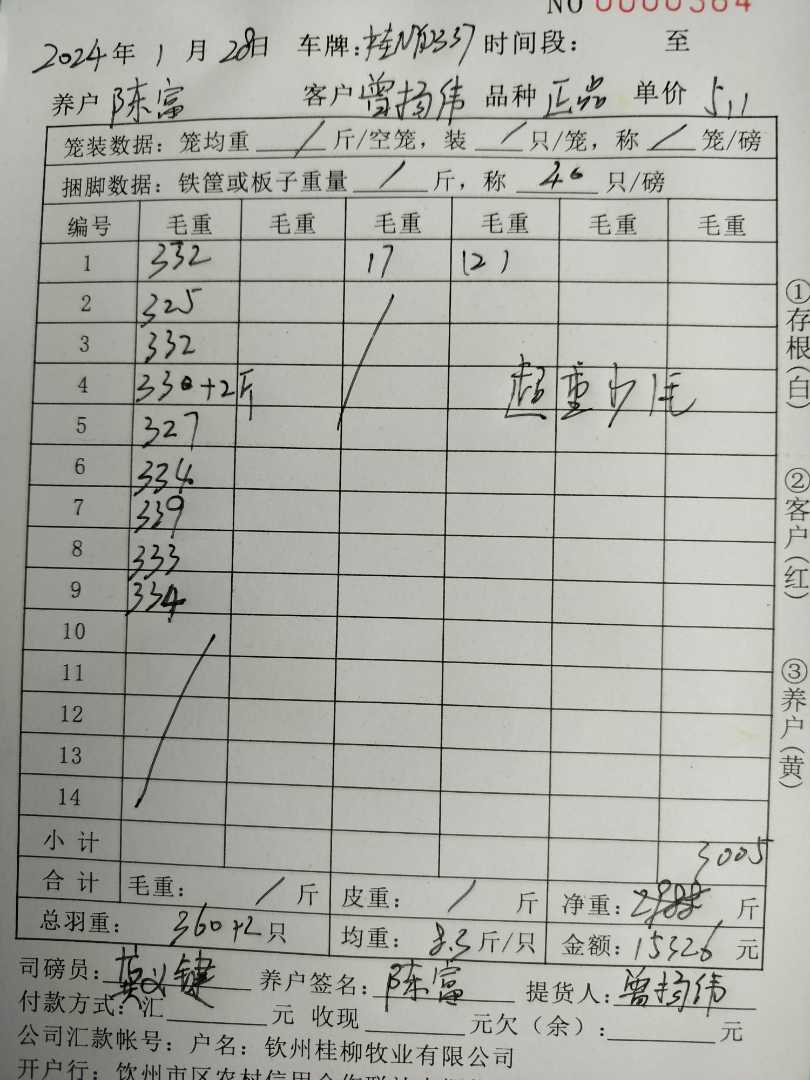 NO 0000364
2024年 1 月 28日 车牌: 时间段: 至
养户 陈富 客户 曾扬伟 品种 正品 单价 5.1
笼装数据: 笼均重 / 斤/空笼, 装 / 只/笼, 称 / 笼/磅
捆脚数据: 铁筐或板子重量 / 斤, 称 40 只/磅
编号 毛重 毛重 毛重 毛重 毛重 毛重
1 332 17 (2)
2 325
3 332
4 330+2斤 超重
5 327
6 334
7 339
8 333
9 334
10
11
12
13
14
小计 3005
合计 毛重: / 斤 皮重: / 斤 净重: 斤
总羽重: 360+2 只 均重: 8.3 斤/只 金额: 15326 元
司磅员: 养户签名: 陈富 提货人: 曾扬伟
付款方式: 汇 元 收现 元欠(余): 元
公司汇款帐号: 户名: 钦州桂柳牧业有限公司
开户行: 钦州市区农村信用合作联社
①存根(白)
②客户(红)
③养户(黄)